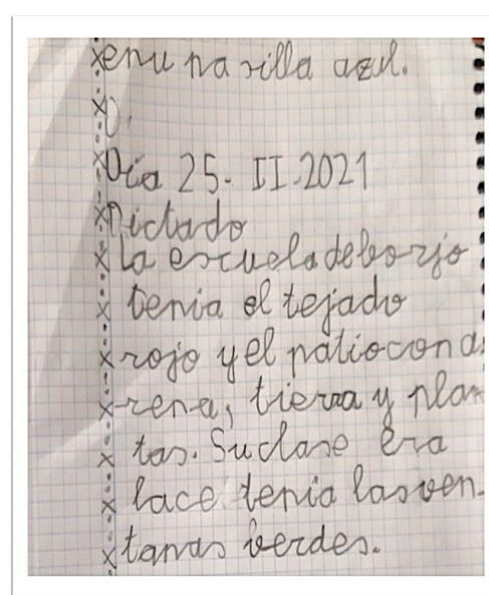 enu na silla azul.
D.
Día 25. II. 2021
Dictado
La escuela de borjo
tenia el tejado
rojo y el patio con a
rena, tierra y plan
tas. Su clase era
lace tenia las ven-
tanas verdes.